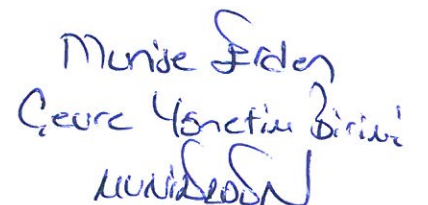 Munise Erden
Çevre Yönetim Birimi